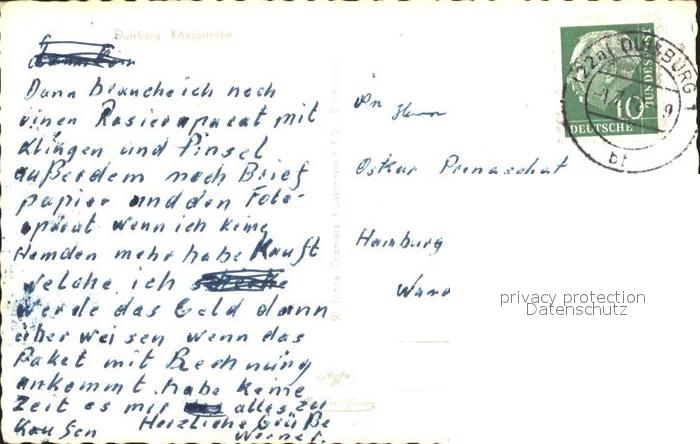 Duisburg, Königstraße
Dann brauche ich noch
einen Rasieraparat mit
Klingen und Pinsel
außerdem noch Brief
papier und den Foto-
aparat wenn ich keine
Hemden mehr habe Kauft
welche ich
werde das Geld dann
über wei sen wenn das
Paket mit Rechnung
ankommt. habe keine
Zeit es mir alles zu
Kaufen Herzliche Grüße
Werner.
An Herrn
Oskar
Hamburg
(22a) DUISBURG 1
bf
10
DEUTSCHE
BUNDESPOST
privacy protection
Datenschutz